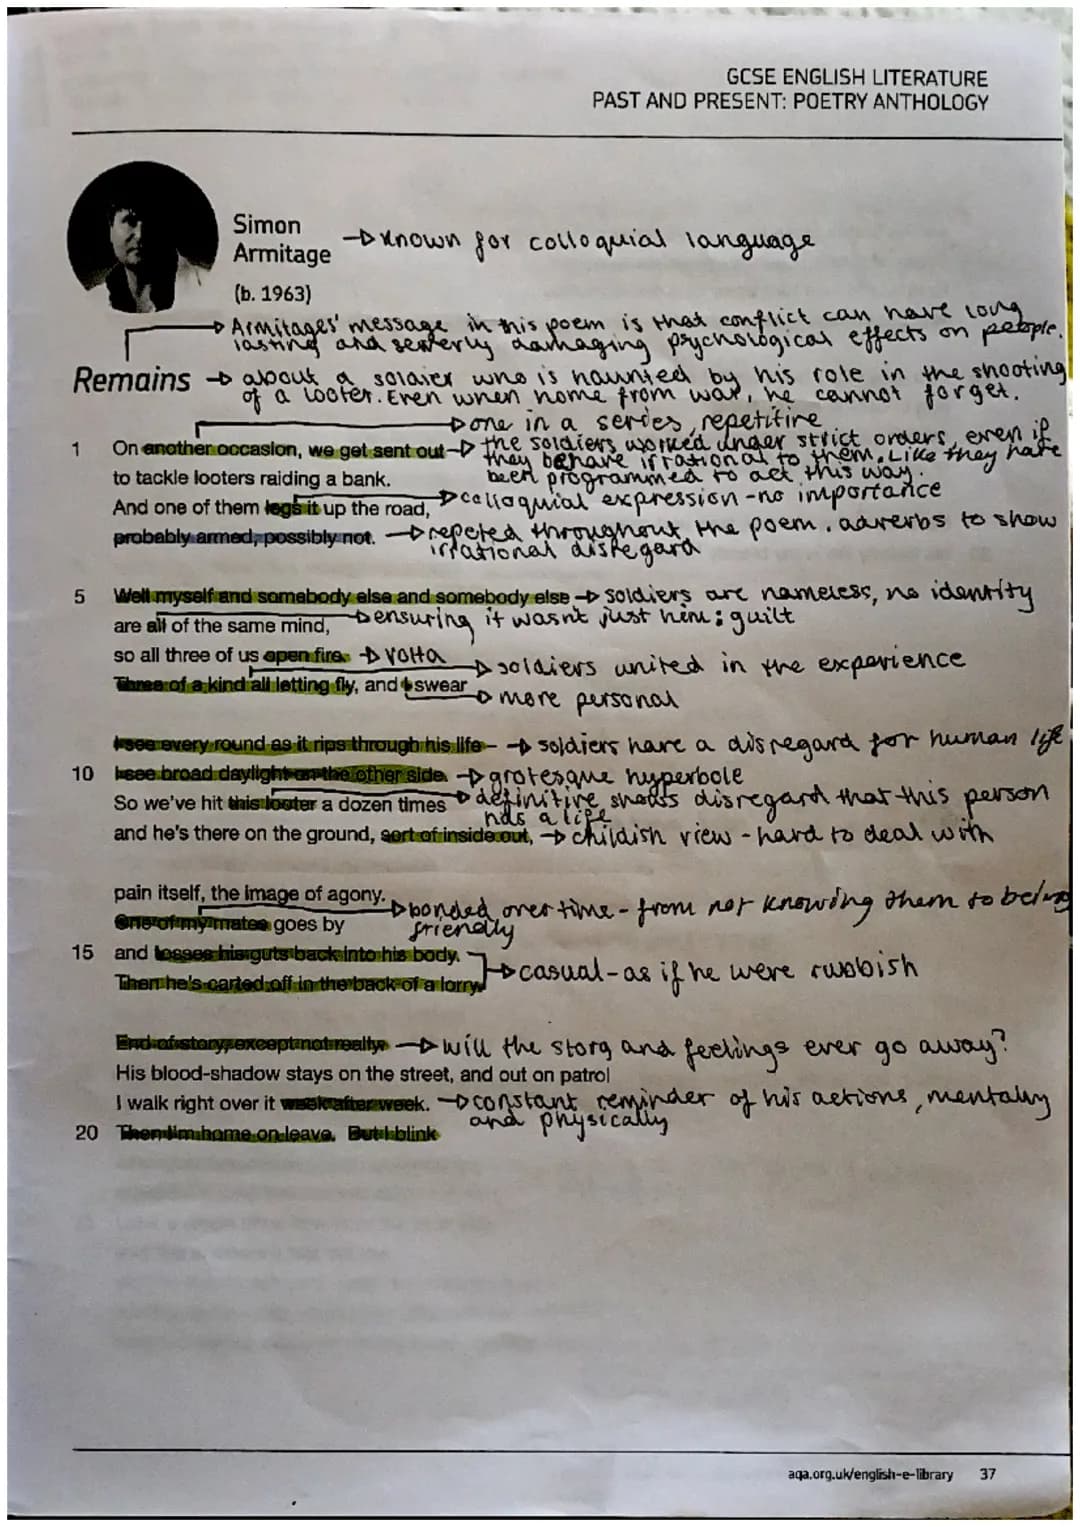 GCSE ENGLISH LITERATURE
PAST AND PRESENT: POETRY ANTHOLOGY
Simon
Armitage
(b. 1963)
→ known for colloquial language
→ Armitages' message in this poem is that conflict can have long
lasting and severly damaging psychological effects on people.
Remains → about a soldier who is haunted by his role in the shooting
of a looter. Even when home from war, he cannot forget.
→ one in a series, repetitive
1 On another occasion, we get sent out → the soldiers worked under strict orders, even if
they behave irrational to them. Like they have
been programmed to act this way.
to tackle looters raiding a bank.
And one of them legs it up the road, → colloquial expression - no importance
probably armed, possibly not. → repeted throughout the poem. adverbs to show
irrational disregard
5 Well myself and somebody else and somebody else → soldiers are nameless, no identity
are all of the same mind, → ensuring it wasn't just him; guilt
so all three of us open fire. → volta
→ soldiers united in the experience
Three of a kind all letting fly, and I swear
→ more personal
I see every round as it rips through his life – → soldiers have a disregard for human life
10 I see broad daylight on the other side. → grotesque hyperbole
So we've hit this looter a dozen times → definitive shows disregard that this person
has a life
and he's there on the ground, sort of inside out, → childish view - hard to deal with
pain itself, the image of agony.
→ bonded over time - from not knowing them to being
friendly
One of my mates goes by
15 and tosses his guts back into his body.
→ casual - as if he were rubbish
Then he's carted off in the back of a lorry.
End of story, except not really. → will the story and feelings ever go away?
His blood-shadow stays on the street, and out on patrol
I walk right over it week after week. → constant reminder of his actions, mentally
and physically
20 Then I'm home on leave. But I blink
aqa.org.uk/english-e-library 37